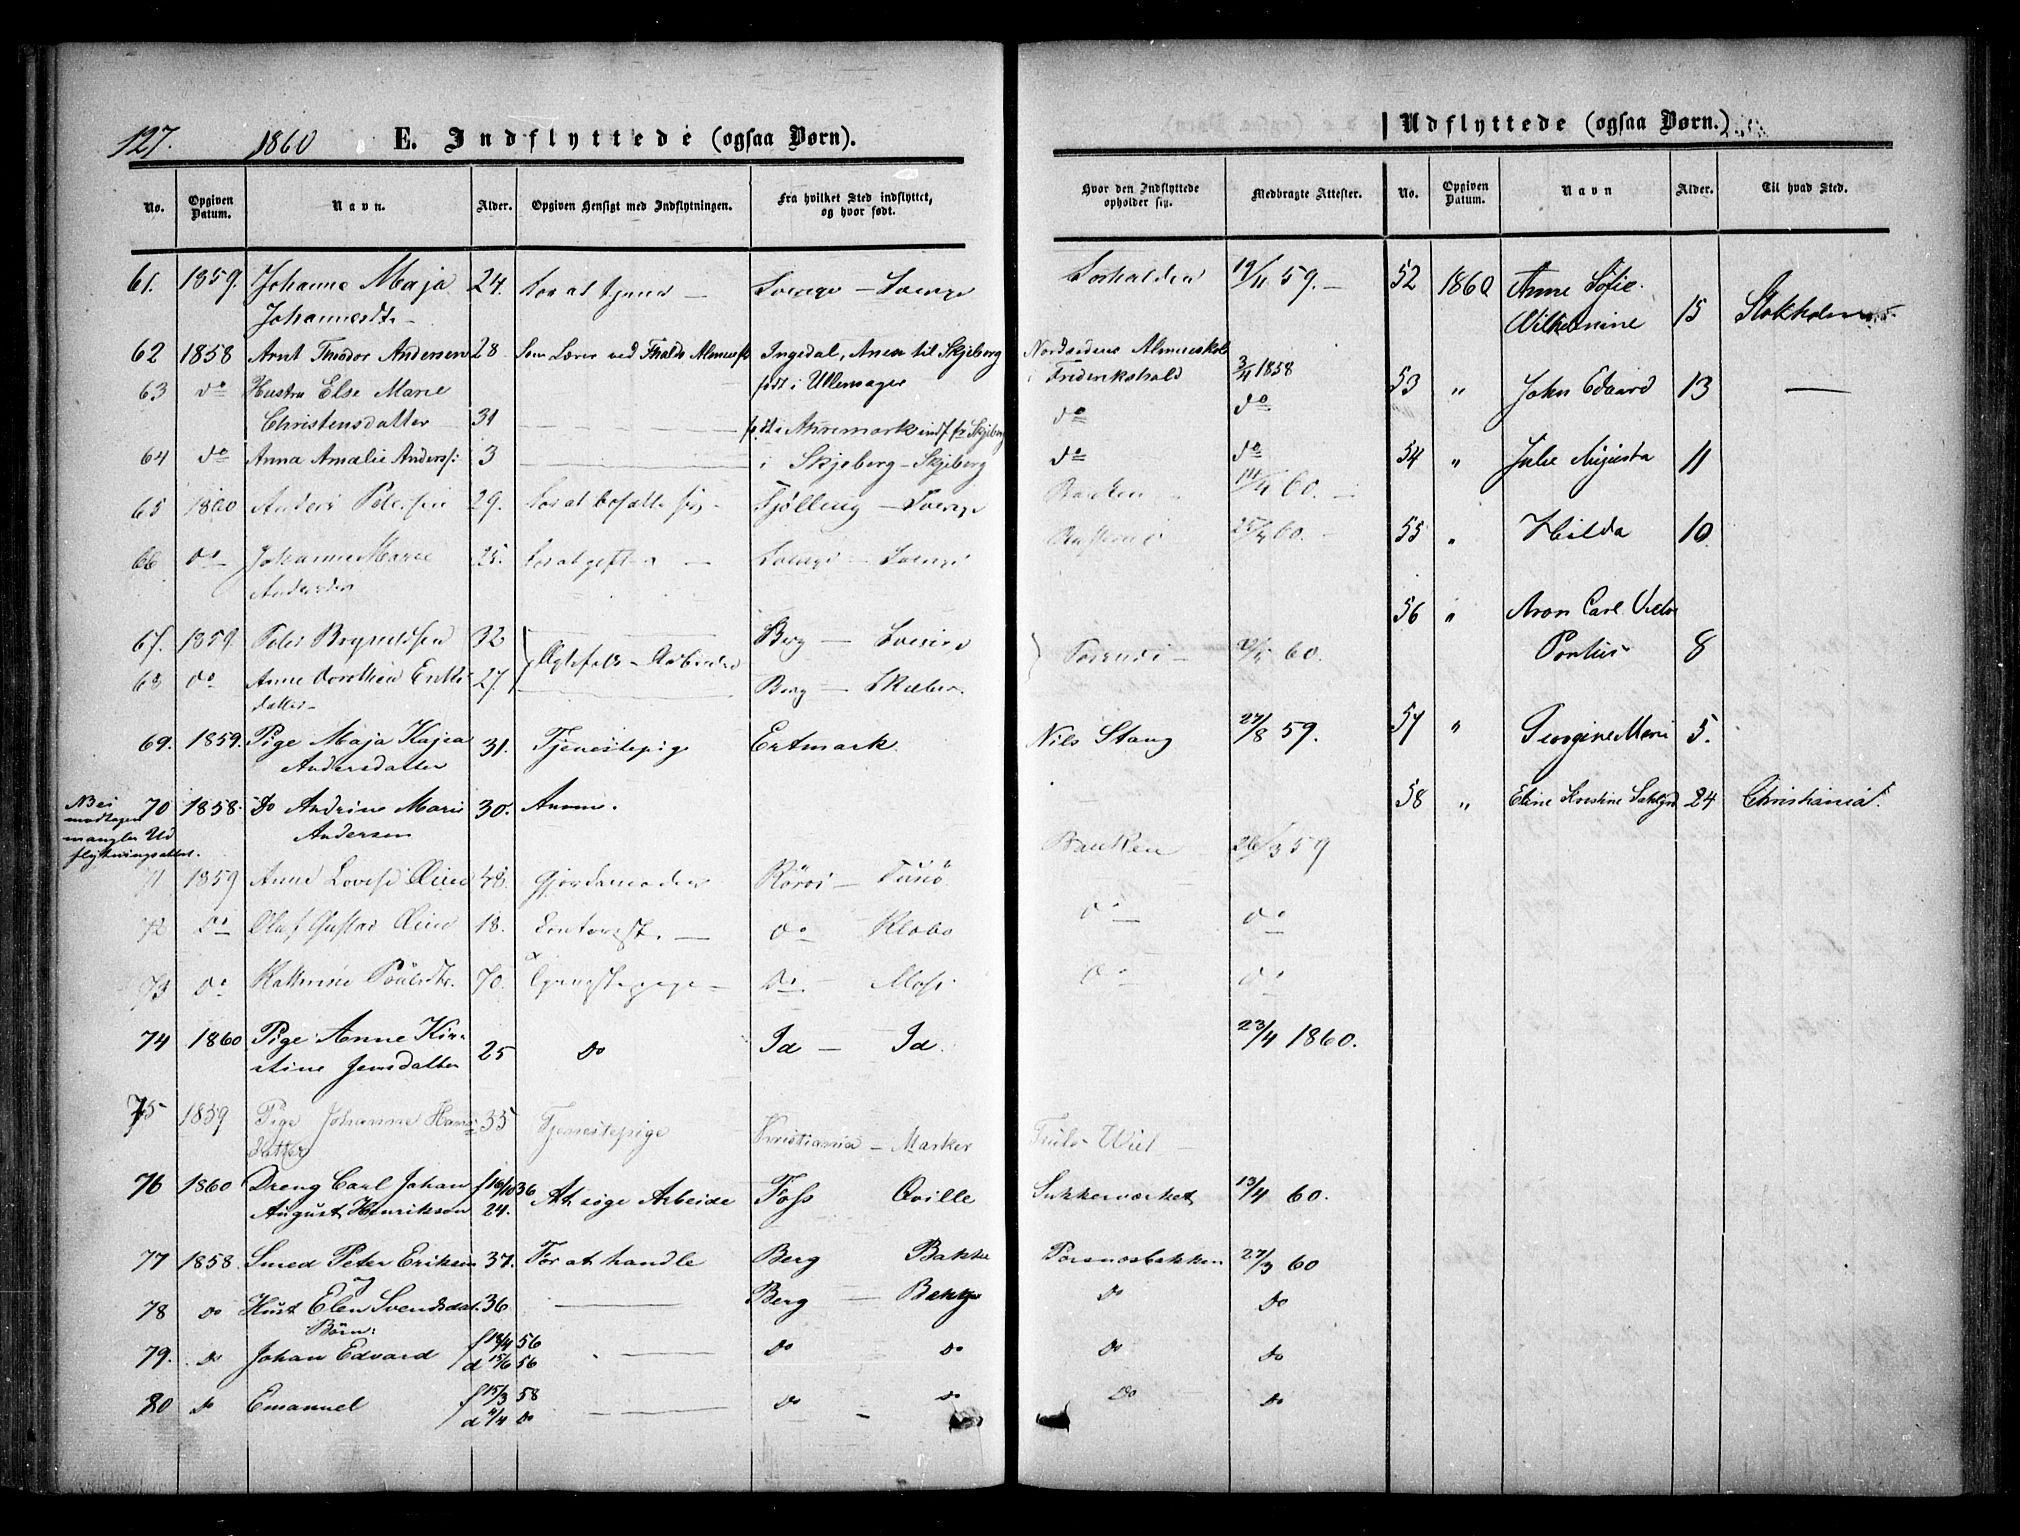 127. 1860 E. Indflyttede (ogsaa Børn).
No. Opgiven Datum. Navn. Alder. Opgiven Hensigt med Indflytningen. Fra hvilket Sted indflyttet, og hvor født.
61. 1859. Johanne Maja 24. For at tjene — Sverige — Sverige
Johannesdtr
62 1858 Arnt Theodor Andersen 28. Som Lærer ved Halds Almuesk Ingedal, Anex til Skjeberg
63 do Hustru Else Marie født i Ullensager
Christensdatter 31 født i Arremark indf fr Skjeberg
64 do Anna Amalie Anders: 3 i Skjeberg — Skjeberg
65 1860 Anders Petersen 29. For at bosætte sig Fjølling — Sverige
66 do Johanne Marie 25. For at gifte — Sverige — Sverige
Andersdtr
67. 1859. Peter Bryneldsen 32 Ægtefolk — Arbeider Berg —
68 do Anne Dorothea Eriks 27. Berg —
datter
69. 1859. Pige Maja Kajsa 31. Tjenestepige Ertmark
Andersdatter
70 1858. Do Andrine Marie 30. Amme.
Andersen
NB ei
modtagen
mangler Ud
flytningsattest.
71 1859 Anne Lovise 48. Røros —
72 do Oluf Gustav 18. Contorist — do
73 do Kathrine Poulsdtr. 70. do Moss
74 1860 Pige Anne Kir- 25 Do Id — Id.
stine Jensdatter
75 1859 Pige Johanne Hans 35 Tjenestepige Christiania — Marker
datter
76 1860 Dreng Carl Johan f 16/10 36 At søge Arbeide Foss Qville
August Henriksen 24.
77 1858. Smed Peter Eriksen 37. For at handle Berg Bakke
78 do Hust Elen Svendsdat. 36 Berg — Bakke
Børn:
79. do Johan Edvard f 18/4 56 do do
d 15/6 56
80 do Emanuel f 15/3 58 do do
d 4/4 do
Udflyttede (ogsaa Børn.)
Hvor den Indflyttede opholder sig. Medbragte Attester. No. Opgiven Datum. Navn Alder. Til hvad Sted.
19/11 59. — 52 1860 Anne Sofie
Wilhelmine 15 Stokholm
Nordsidens Almueskole
i Frederikshald 3/4 1858 53 " John Edvard 13 —
do do
do do 54 " Julie Augusta 11
Banken 14/4 60. —
25/4 60. — 55 " Hilda 10
56 " Aron Carl Victor
Pontus 8
Torsnæs — 60.
Nils Stang 27/8 59. 57 " Georgine Marie 5.
58 " Eline Kristine 24 Christiania.
Banken 26/3 59
do do
do do
23/4 1860.
Truls Wiel —
Sukkerværket 13/4 60.
Torsnæsbakken 27/3 60
do do
do do
do do